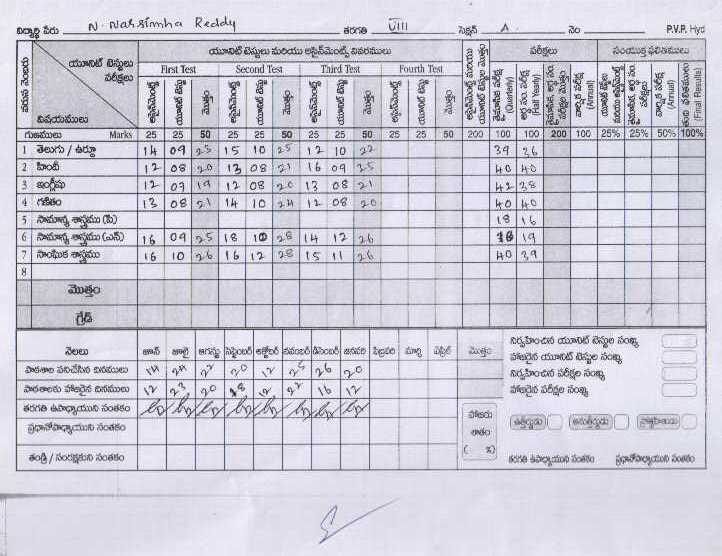 విద్యార్థి పేరు N. Narsimha Reddy తరగతి VIII సెక్షన్ A. నెం P.V.P. Hyd
వరుస నెంబరు యూనిట్ టెస్టులు పరీక్షలు విషయములు యూనిట్ టెస్టులు మరియు అసైన్‌మెంట్స్ వివరములు అసైన్‌మెంట్ల మరియు యూనిట్ టెస్టుల మొత్తం పరీక్షలు సంయుక్త ఫలితములు
First Test Second Test Third Test Fourth Test
అసైన్‌మెంట్ యూనిట్ టెస్ట్ మొత్తం అసైన్‌మెంట్ యూనిట్ టెస్ట్ మొత్తం అసైన్‌మెంట్ యూనిట్ టెస్ట్ మొత్తం అసైన్‌మెంట్ యూనిట్ టెస్ట్ మొత్తం (Quarterly) (Half Yearly) (Annual) (Annual) (Final Results)
గుణములు Marks 25 25 50 25 25 50 25 25 50 25 25 50 200 100 100 200 100 25% 25% 50% 100%
1 తెలుగు / ఉర్దూ 14 09 23 15 10 25 12 10 22 39 36
2 హిందీ 12 08 20 13 08 21 16 09 25 40 40
3 ఇంగ్లీషు 12 07 19 12 08 20 13 08 21 42 38
4 గణితం 13 08 21 14 10 24 12 08 20 40 40
5 సామాన్య శాస్త్రము (పి) 18 16
6 సామాన్య శాస్త్రము (ఎన్) 16 09 25 18 10 28 14 12 26 18 19
7 సాంఘిక శాస్త్రము 16 10 26 16 12 28 15 11 26 40 39
8
మొత్తం
గ్రేడ్
నెలలు జూన్ జూలై ఆగస్టు సెప్టెంబర్ అక్టోబర్ నవంబర్ డిసెంబర్ జనవరి ఫిబ్రవరి మార్చి ఏప్రిల్ మొత్తం
పాఠశాల పనిచేసిన దినములు 14 24 22 20 12 25 26 20
పాఠశాలకు హాజరైన దినములు 12 23 20 18 12 22 16 12
తరగతి ఉపాధ్యాయుని సంతకం
ప్రధానోపాధ్యాయుని సంతకం
తండ్రి / సంరక్షకుని సంతకం
హాజరు శాతం ( %)
నిర్వహించిన యూనిట్ టెస్టుల సంఖ్య
హాజరైన యూనిట్ టెస్టుల సంఖ్య
నిర్వహించిన పరీక్షల సంఖ్య
హాజరైన పరీక్షల సంఖ్య
ఉత్తీర్ణుడు అనుత్తీర్ణుడు
తరగతి ఉపాధ్యాయుని సంతకం ప్రధానోపాధ్యాయుని సంతకం